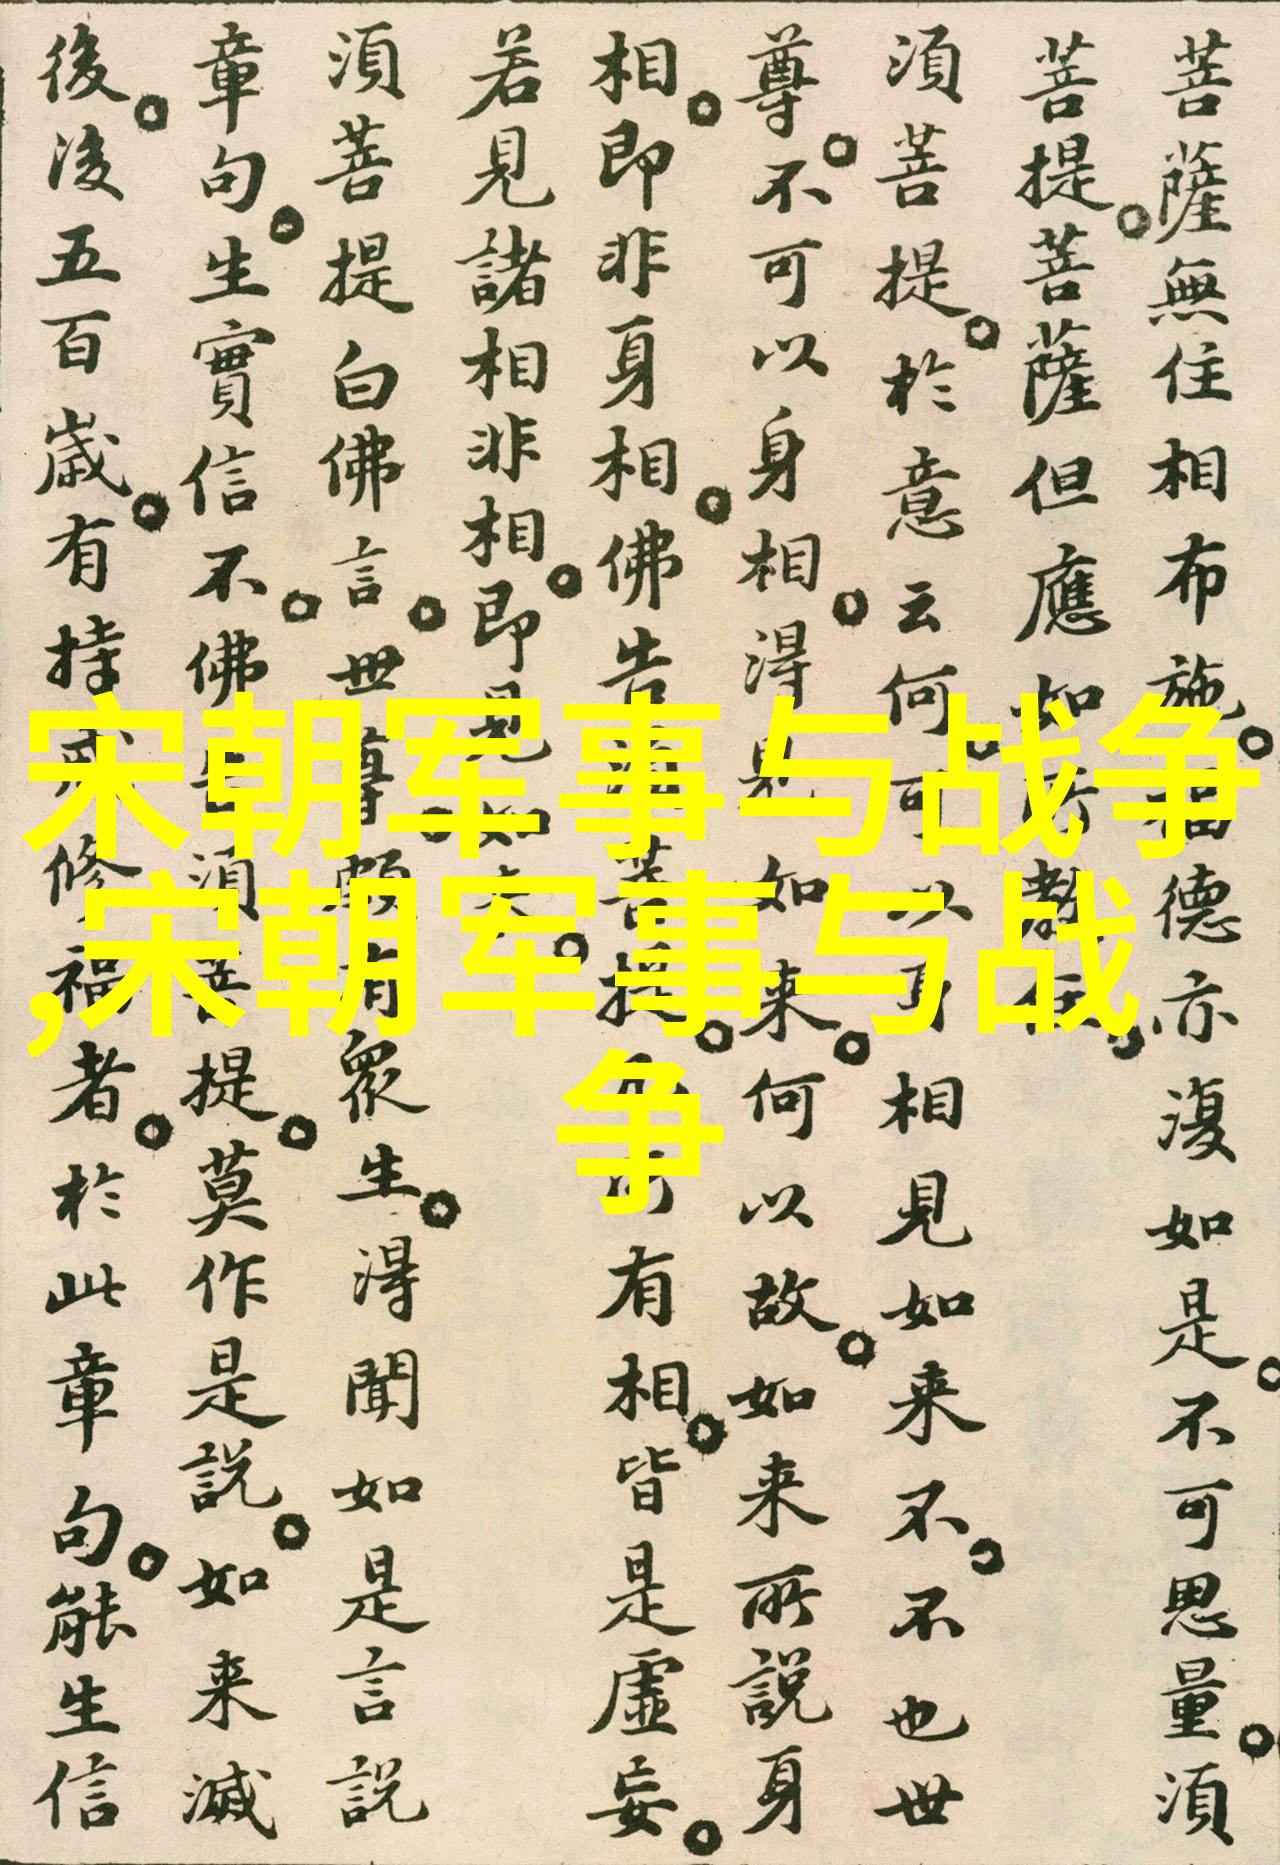 宋朝军事与战争
,宋朝军事与战
争
菩薩無住相布施。福德亦復如是。不可思量。須
菩提。菩薩但應如所教住。
須菩提。於意云何。可以身相見如来不。不也世
尊。不可以身相。得見如来。何以故。如来所說身
相。即非身相。佛告須菩提。凡所有相。皆是虛妄。
若見諸相非相。即見如来。
須菩提白佛言。世尊。頗有眾生。得聞如是言說
章句。生實信不。佛告須菩提。莫作是說。如来滅
後。後五百歲。有持戒修福者。於此章句。能生信